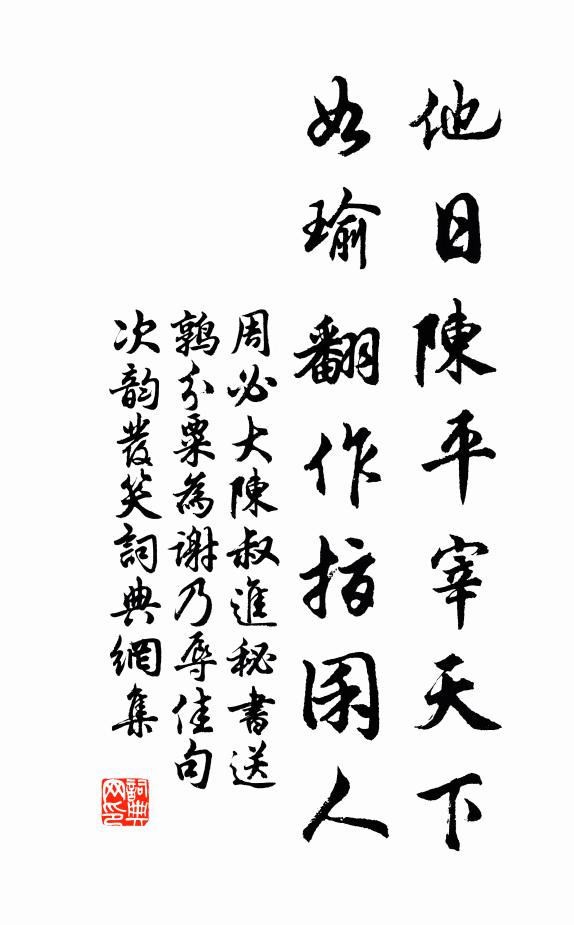 他日陳平宰天下
如瑜翻作指囷人
周必大陳叔進秘書送
鶉分粟為謝乃辱佳句
次韵發笑詞典網集
詞典
网印